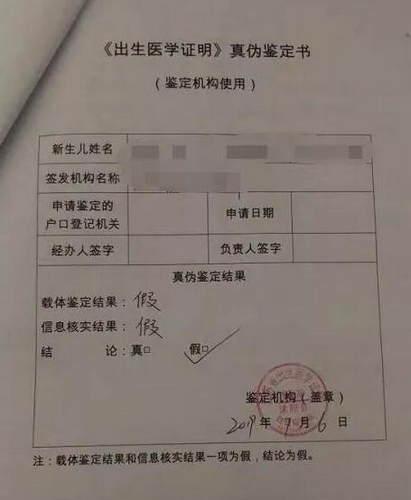 《出生医学证明》真伪鉴定书
（鉴定机构使用）
新生儿姓名
签发机构名称
申请鉴定的
户口登记机关
申请日期
经办人签字
负责人签字
真伪鉴定结果
载体鉴定结果：假
信息核实结果：假
结 论：真□ 假□
鉴定机构（盖章）
2019年9月6日
注：载体鉴定结果和信息核实结果一项为假，结论为假。